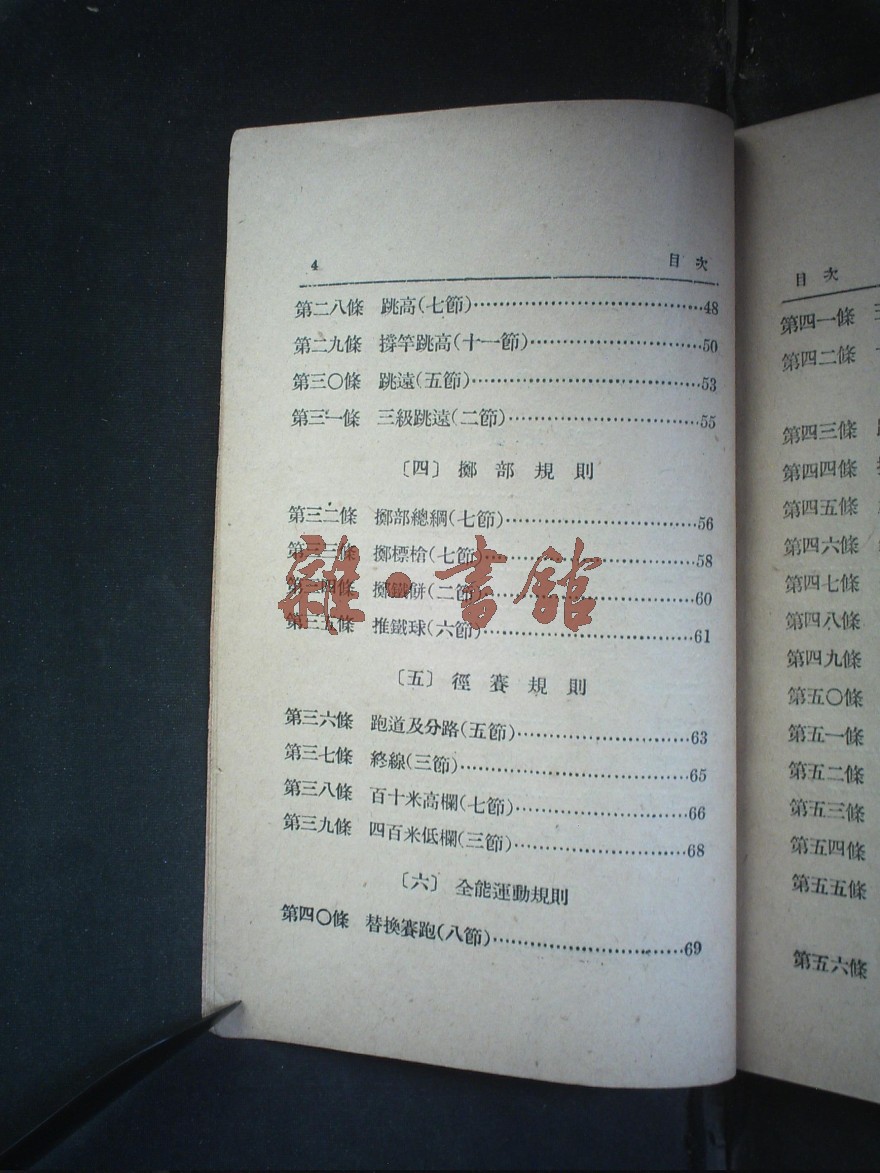 4 目次
第二八條 跳高(七節)……48
第二九條 撐竿跳高(十一節)……50
第三〇條 跳遠(五節)……53
第三一條 三級跳遠(二節)……55
〔四〕 擲部規則
第三二條 擲部總綱(七節)……56
第三三條 擲標槍(七節)……58
第三四條 擲鐵餅(二節)……60
第三五條 推鐵球(六節)……61
〔五〕 徑賽規則
第三六條 跑道及分路(五節)……63
第三七條 終線(三節)……65
第三八條 百十米高欄(七節)……66
第三九條 四百米低欄(三節)……68
〔六〕 全能運動規則
第四〇條 替換賽跑(八節)……69
雜·書館
目次
第四一條
第四二條
第四三條
第四四條
第四五條
第四六條
第四七條
第四八條
第四九條
第五〇條
第五一條
第五二條
第五三條
第五四條
第五五條
第五六條